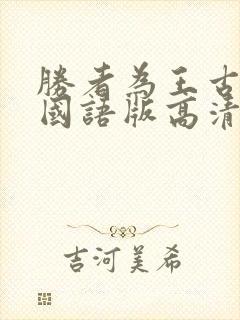 勝者為王古
國語版高清
吉河美希